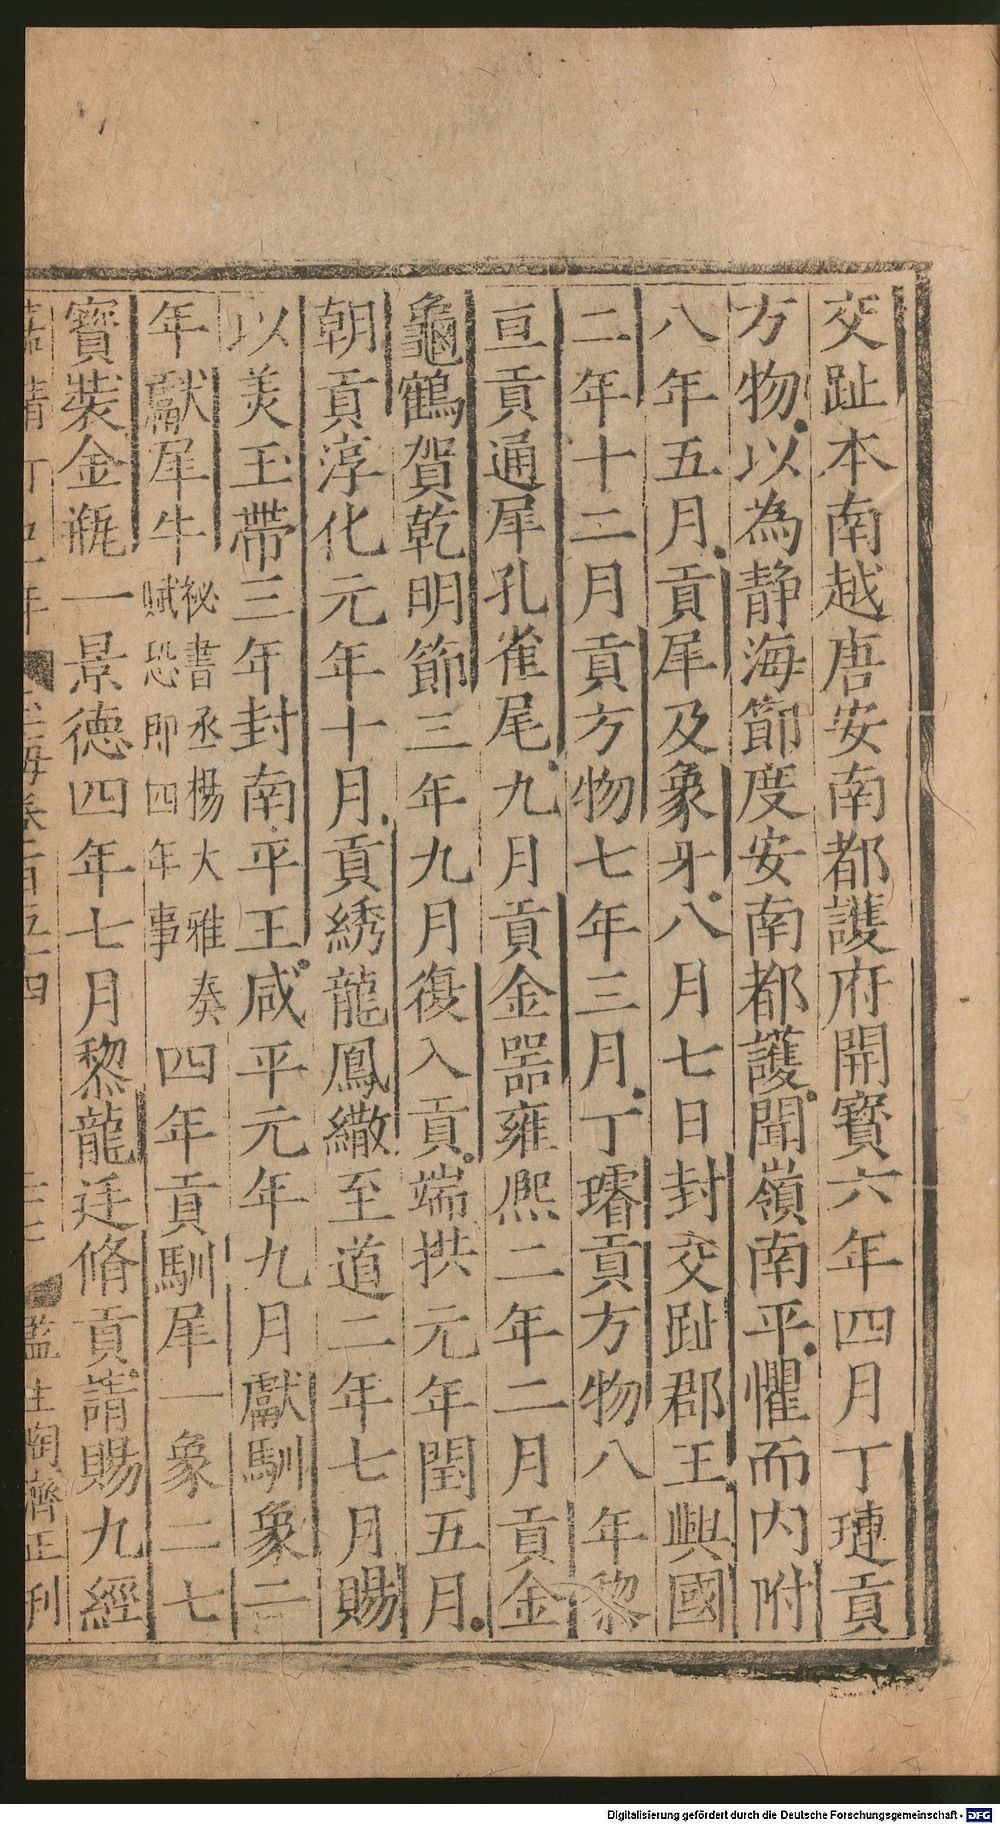 交趾本南越唐安南都護府開寶六年四月丁璉貢
方物以為静海節度安南都護聞嶺南平懼而内附
八年五月貢犀及象牙八月七日封交趾郡王興國
二年十二月貢方物七年三月丁璿貢方物八年黎
亘貢通犀孔雀尾九月貢金器雍熙二年二月貢金
龜鶴賀乾明節三年九月復入貢端拱元年閏五月
朝貢淳化元年十月貢綉龍鳳繖至道二年七月賜
以美玉帶三年封南平王咸平元年九月獻馴象二
年獻犀牛祕書丞楊大雅奏賦恐即四年事四年貢馴犀一象二七
寶裝金瓶一景德四年七月黎龍廷脩貢請賜九經
嘉靖丁巳年
玉海卷百五十四
監生陶濟正刊
Digitalisierung gefördert durch die Deutsche Forschungsgemeinschaft - DFG